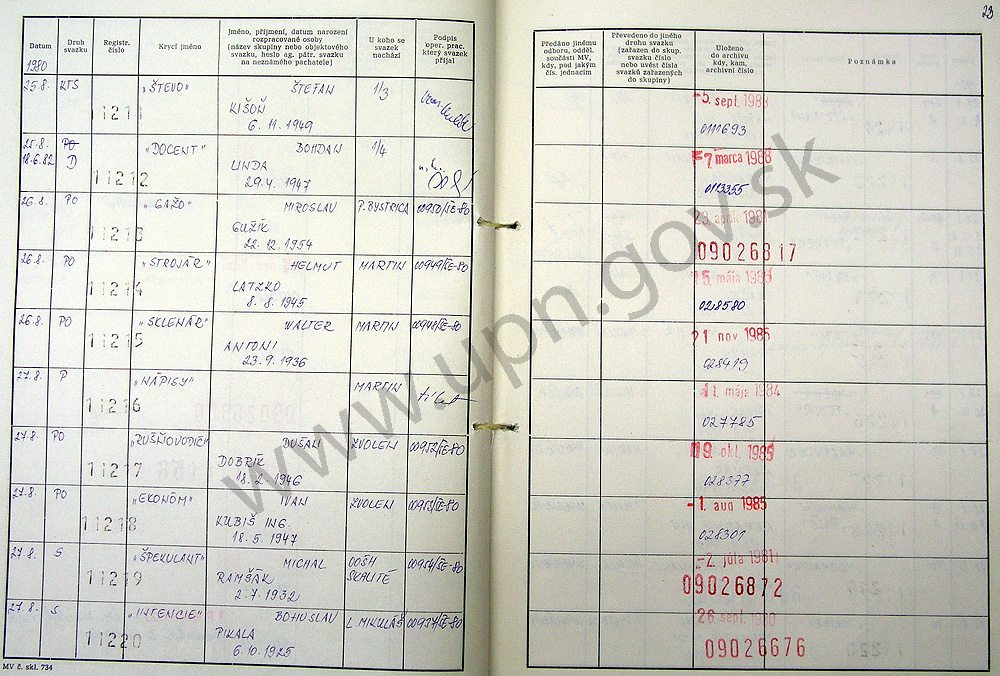 Datum
Druh svazku
Registr. číslo
Krycí jméno
Jméno, příjmení, datum narození rozpracované osoby (název skupiny nebo objektového svazku, heslo ag. pátr. svazku na neznámého pachatele)
U koho se svazek nachází
Podpis oper. prac. který svazek přijal
1980
25.8. KTS 11211 „ŠTEVO" ŠTEFAN 1/3
KIŠOŇ
6. 11. 1949
25.8. PO 11212 „DOCENT" BOHDAN 1/4
18.6.82 D LINDA
29.4. 1947
26.8. PO 11213 „GAŽO" MIROSLAV P. BYSTRICA 00950/IE-80
GUŽÍK
22. 12. 1954
26.8. PO 11214 „STROJÁR" HELMUT MARTIN 00949/IE-80
LATZKO
8. 8. 1945
26.8. PO 11215 „SKLENÁR" WALTER MARTIN 00948/IE-80
ANTONI
23. 9. 1936
27.8. P 11216 „NÁPISY" MARTIN
27.8. PO 11217 „RUŠŇOVODIČ" DUŠAN ZVOLEN 00952/IE-80
DOBRÍK
18. 2. 1946
27.8. PO 11218 „EKONÓM" IVAN ZVOLEN 00953/IE-80
KUBIŠ ING.
18. 5. 1947
27.8. S 11219 „ŠPEKULANT" MICHAL OOŠH SKALITÉ 00954/IE-80
RAMŠÁK
2. 7. 1932
27.8. S 11220 „INTENCIE" BOHUSLAV L. MIKULÁŠ 00957/IE-80
PIKALA
6. 10. 1925
MV č. skl. 734
Předáno jinému odboru, odděl. součásti MV, kdy, pod jakým čís. jednacím
Převedeno do jiného druhu svazku (zařazen do skup. svazku číslo nebo uvést čísla svazků zařazených do skupiny)
Uloženo do archivu kdy, kam, archivní číslo
Poznámka
-5. sept. 1983
0111693
-7. marca 1988
0113355
09026817
15. mája
028580
21 nov 1985
028419
11. mája 1984
027785
19. okt. 1985
028377
-1. aug 1985
028301
-2. júla 1981
09026872
26 sept. 1980
09026676
www.upn.gov.sk